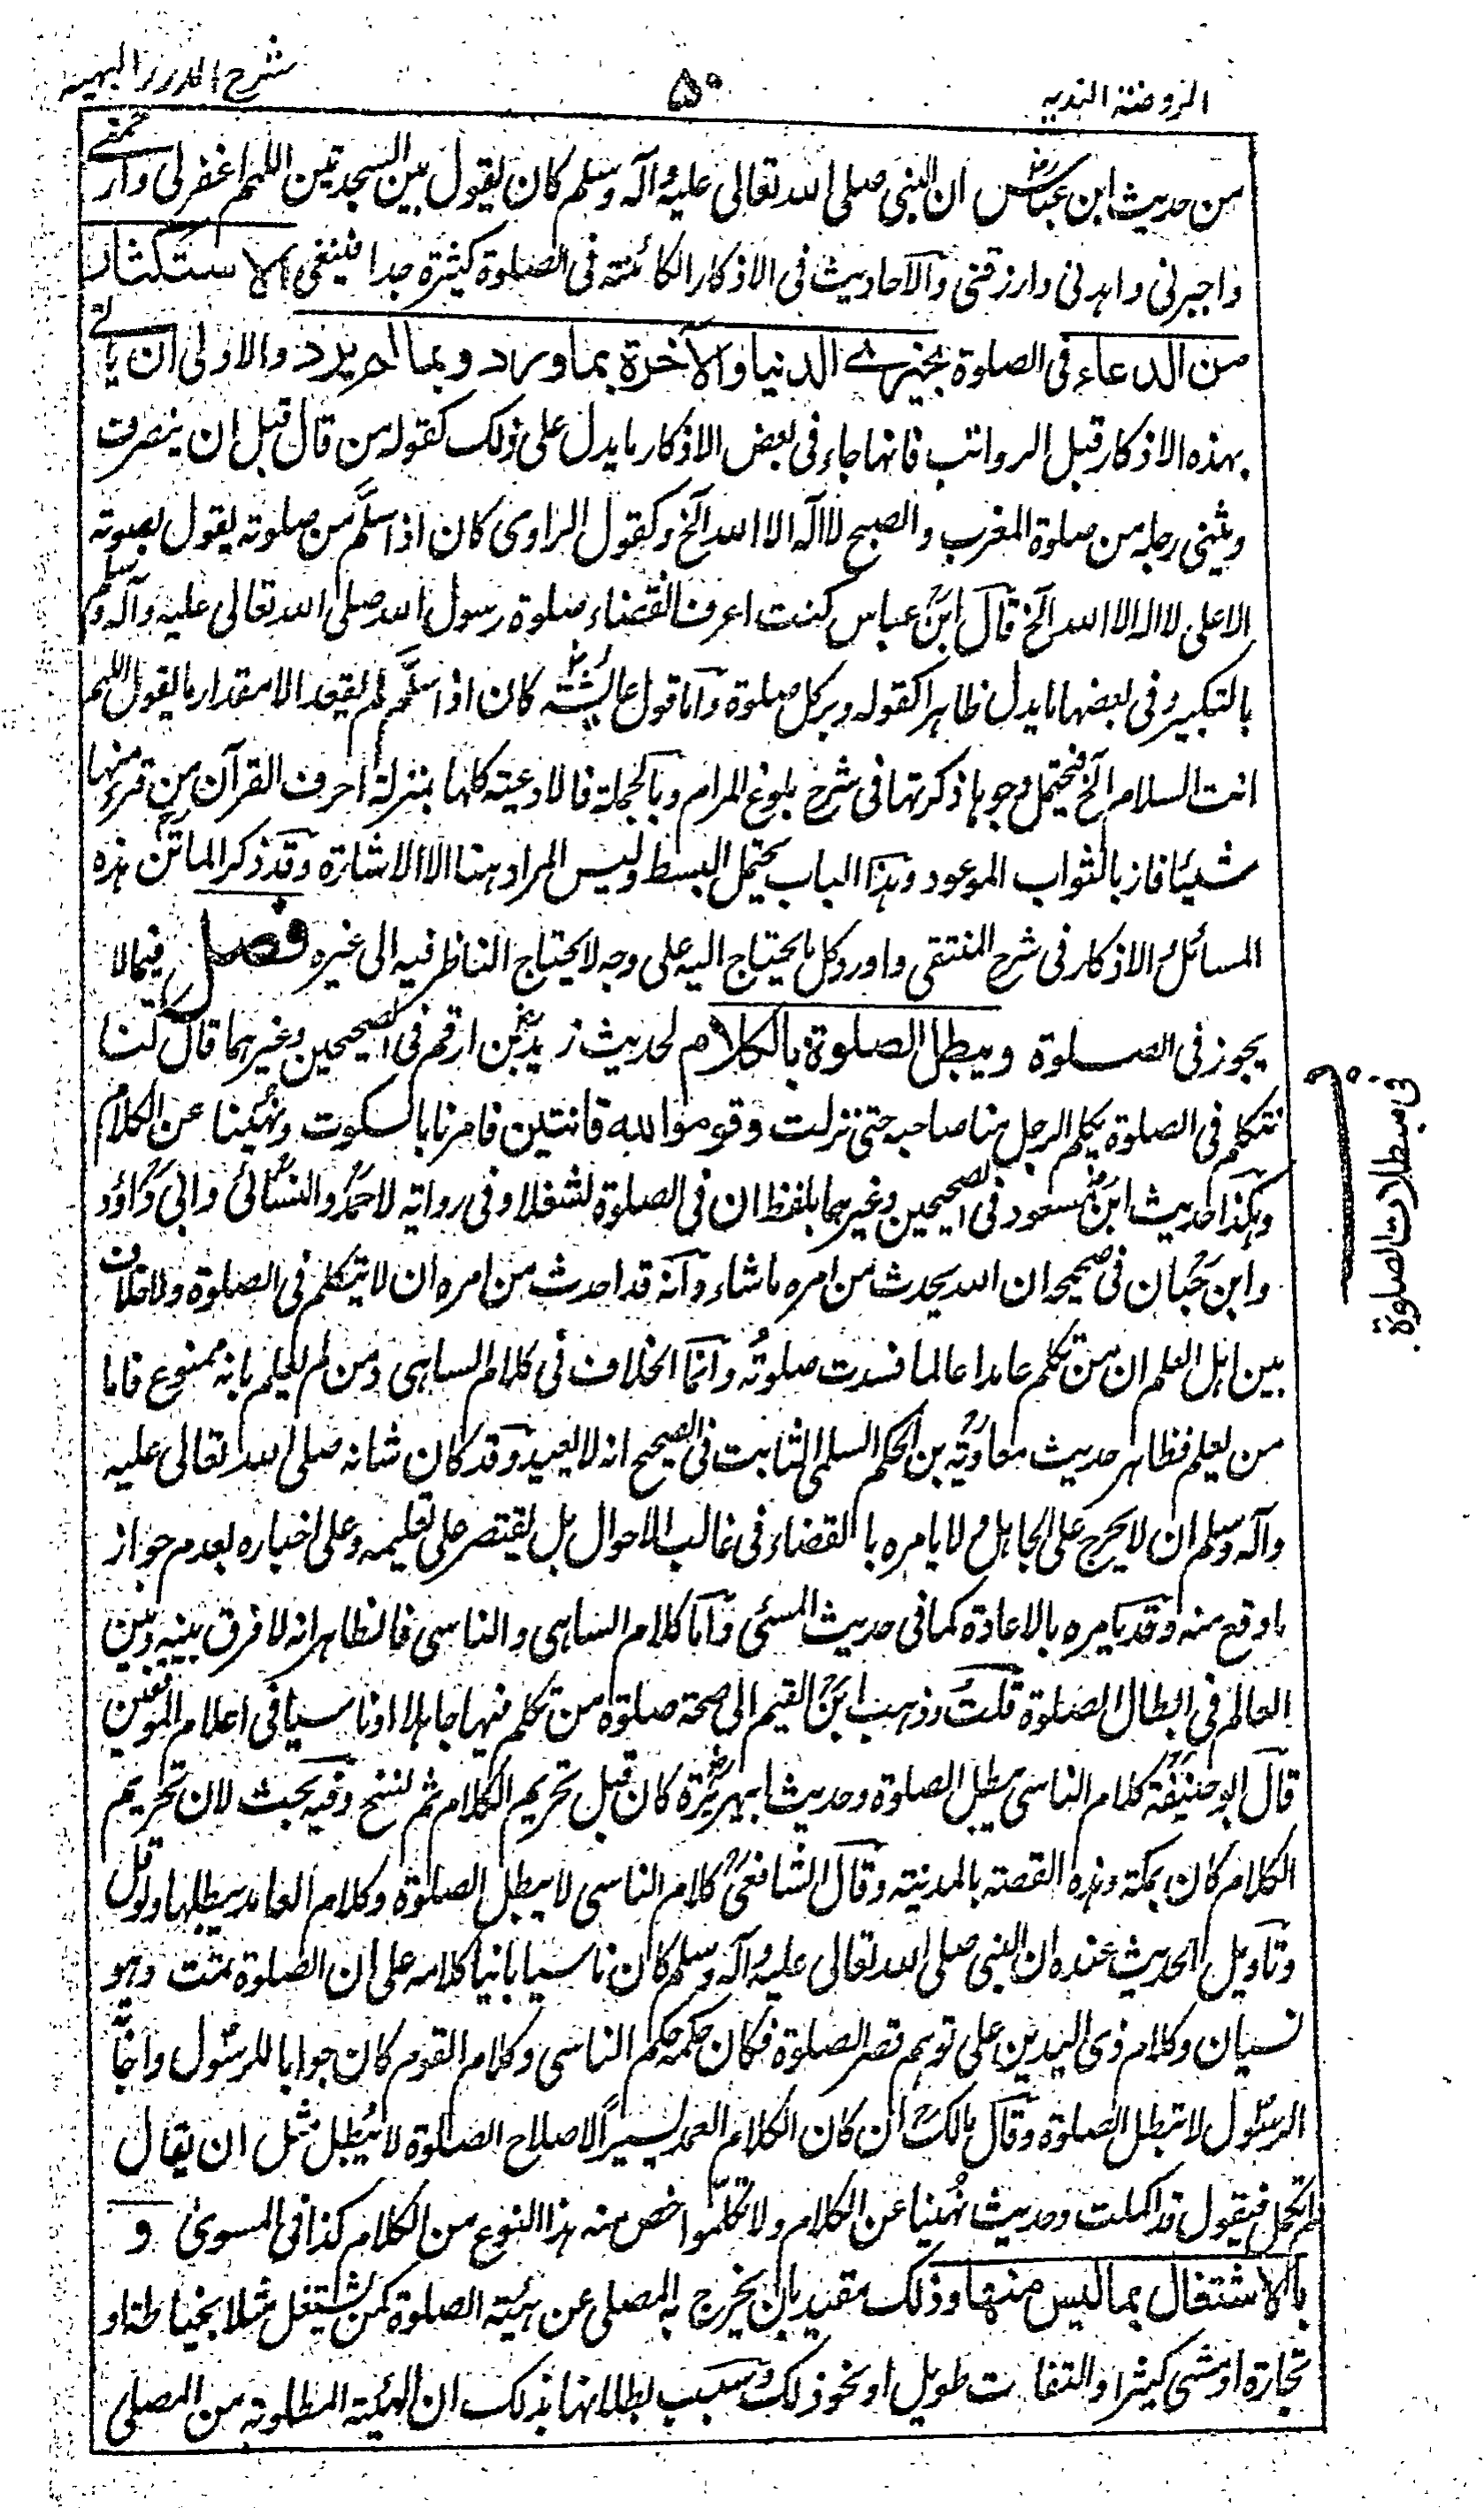 الروضة الندية
۵۰
شرح الدرر البهية
من حديث ابن عباس ان النبى صلى الله تعالى عليه وآله وسلم كان يقول بين السجدتين اللهم اغفر لى وارحمنى
واجبرنى واهدنى وارزقنى والاحاديث فى الاذكار الكائنة فى الصلوة كثيرة جدا فينبغى الاستكثار
من الدعاء فى الصلوة بخيرى الدنيا والآخرة بما ورد وبما لم يرد والاولى ان ياتى
بهذه الاذكار قبل الرواتب فانها جاء فى بعض الاذكار ما يدل على ذلك كقوله من قال قبل ان ينصرف
ويثنى رجله من صلوة المغرب والصبح لا اله الا الله الخ وكقول الراوى كان اذا سلّم من صلوته يقول بصوته
الاعلى لا اله الا الله الخ قال ابن عباس كنت اعرف انقضاء صلوة رسول الله صلى الله تعالى عليه وآله وسلم
بالتكبير وفى بعضها ما يدل ظاهرا كقوله دبر كل صلوة واما قول عائشة كان اذا سلّم لم يقعد الا مقدار ما يقول اللهم
انت السلام الخ فيحتمل وجوها ذكرتها فى شرح بلوغ المرام وبالجملة فالادعية كلها بمنزلة احرف القرآن من قرء منها
شيئا فاز بالثواب الموعود وهذا الباب يحتمل البسط وليس المراد هنا الا الاشارة وقد ذكر الماتن هذه
المسائل والاذكار فى شرح المنتقى واورد كل ما يحتاج اليه على وجه لا يحتاج الناظر فيه الى غيره فصل فيما لا
يجوز فى الصلوة ويبطل الصلوة بالكلام لحديث زيد بن ارقم فى الصحيحين وغيرهما قال كنا
نتكلم فى الصلوة يكلم الرجل منا صاحبه حتى نزلت وقوموا لله قانتين فامرنا بالسكوت ونُهينا عن الكلام
وهكذا حديث ابن مسعود فى الصحيحين وغيرهما بلفظ ان فى الصلوة لشغلا وفى رواية لاحمد والنسائى وابى داؤد
وابن حبان فى صحيحه ان الله يحدث من امره ما شاء وانه قد احدث من امره ان لا يتكلم فى الصلوة ولا خلاف
بين اهل العلم ان من تكلم عامدا عالما فسدت صلوته وانما الخلاف فى كلام الساهى ومن لم يعلم بانه ممنوع فاما
من لم يعلم فظاهر حديث معاوية بن الحكم السلمى الثابت فى الصحيح انه لا يعيد وقد كان شانه صلى الله تعالى عليه
وآله وسلم ان لا يحرج على الجاهل ولا يامره بالقضاء فى غالب الاحوال بل يقتصر على تعليمه وعلى اخباره بعدم جواز
ما وقع منه وقد يامره بالاعادة كما فى حديث المسئى واما كلام الساهى والناسى فالظاهر انه لا فرق بينه وبين
العالم فى ابطال الصلوة قلت وذهب ابن القيم الى صحة صلوة من تكلم فيها جاهلا او ناسيا فى اعلام الموقعين
قال ابو حنيفة كلام الناسى يبطل الصلوة وحديث ابى هريرة كان قبل تحريم الكلام ثم نسخ وفيه بحث لان تحريم
الكلام كان بمكة وهذه القصة بالمدينة وقال الشافعى كلام الناسى لا يبطل الصلوة وكلام العامد يبطلها ولو قل
وتاويل الحديث عنده ان النبى صلى الله تعالى عليه وآله وسلم كان ناسيا بانيا كلامه على ان الصلوة تمت وهو
نسيان وكلام ذى اليدين على توهم قصر الصلوة فكان حكمه حكم الناسى وكلام القوم كان جوابا للرسول واجابة
الرسول لا تبطل الصلوة وقال مالك ان كان الكلام العمد يسيرا لاصلاح الصلوة لا يبطل مثل ان يقال
لم تكمل فيقول قد اكملت وحديث نُهينا عن الكلام ولا تكلموا خص منه هذا النوع من الكلام كذا فى المسوى و
بالاشتغال بما ليس منها وذلك مقيد بان يخرج به المصلى عن هيئة الصلوة كمن يشتغل مثلا بخياطة او
تجارة او مشى كثير او التفات طويل او نحو ذلك وسبب بطلانها بذلك ان الهيئة المطلوبة من المصلى
فى مبطلات الصلوة